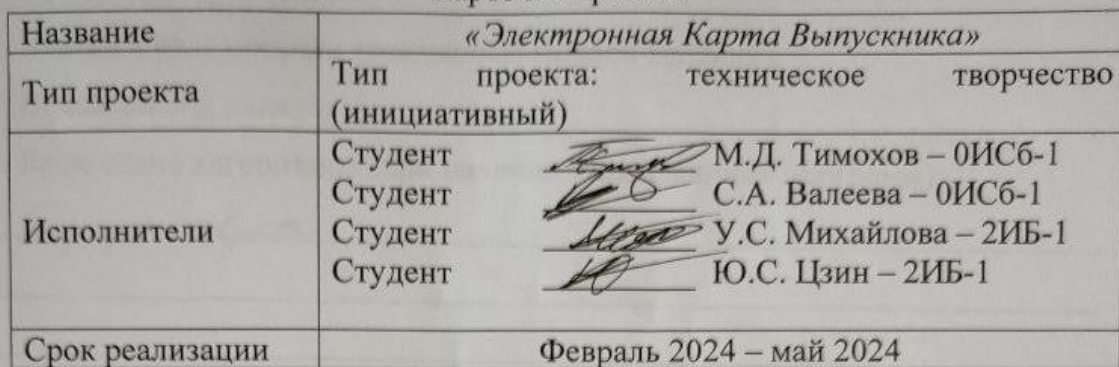 Название
«Электронная Карта Выпускника»
Тип проекта
Тип проекта: техническое творчество
(инициативный)
Исполнители
Студент М.Д. Тимохов – 0ИСб-1
Студент С.А. Валеева – 0ИСб-1
Студент У.С. Михайлова – 2ИБ-1
Студент Ю.С. Цзин – 2ИБ-1
Срок реализации
Февраль 2024 – май 2024